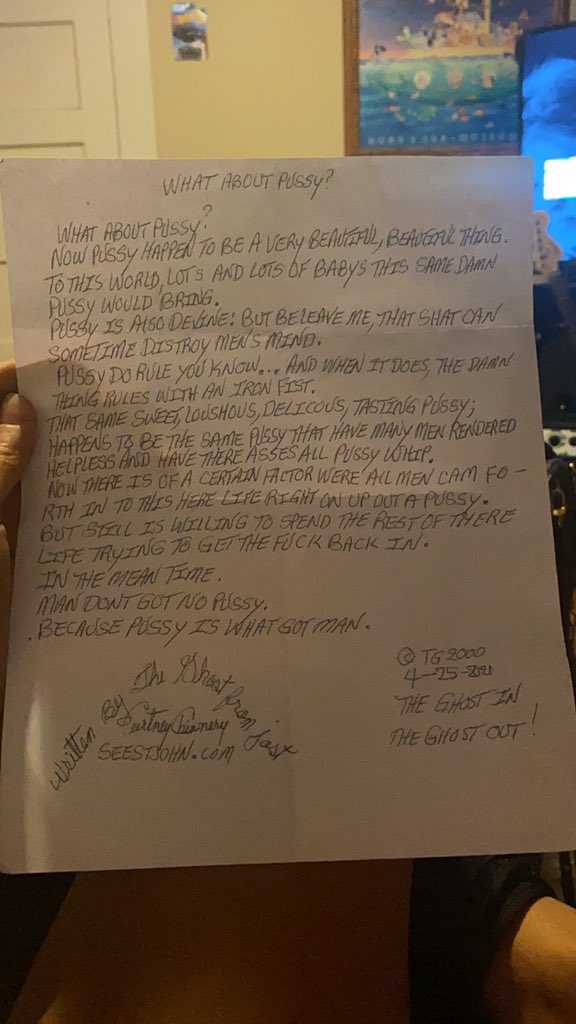 WHAT ABOUT PUSSY?
WHAT ABOUT PUSSY?
NOW PUSSY HAPPEN TO BE A VERY BEAUTIFUL, BEAUTIFUL THING.
TO THIS WORLD, LOTS AND LOTS OF BABYS THIS SAME DAMN
PUSSY WOULD BRING.
PUSSY IS ALSO DEVINE: BUT BELEAVE ME, THAT SHAT CAN
SOMETIME DISTROY MEN'S MIND.
PUSSY DO RULE YOU KNOW... AND WHEN IT DOES, THE DAMN
THING RULES WITH AN IRON FIST.
THAT SAME SWEET, LOUSHOUS, DELICOUS, TASTING PUSSY;
HAPPENS TO BE THE SAME PUSSY THAT HAVE MANY MEN RENDERED
HELPLESS AND HAVE THERE ASSES ALL PUSSY WHIP.
NOW THERE IS OF A CERTAIN FACTOR WERE ALL MEN CAM FO-
RTH IN TO THIS HERE LIFE RIGHT ON UP OUT A PUSSY.
BUT STILL IS WILLING TO SPEND THE REST OF THERE
LIFE TRYING TO GET THE FUCK BACK IN.
IN THE MEAN TIME.
MAN DONT GOT NO PUSSY.
BECAUSE PUSSY IS WHAT GOT MAN.
Written By The Ghost from
Courtney
SEESTJOHN.COM
© TG2000
4-25-
THE GHOST IN
THE GHOST OUT!